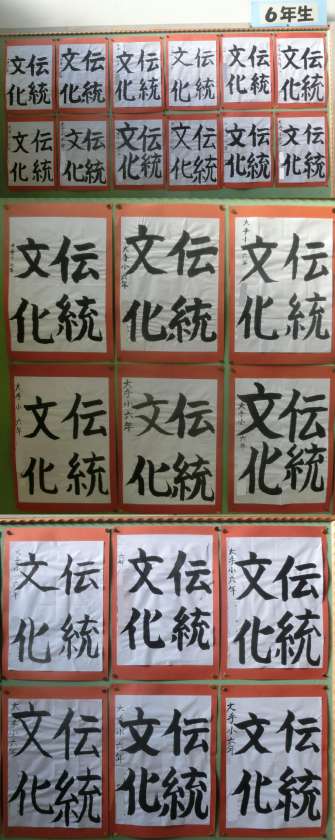 6年生
伝統
文化
伝統
文化
伝統
文化
伝統
文化
伝統
文化
伝統
文化
伝統
文化
伝統
文化
伝統
文化
伝統
文化
伝統
文化
伝統
文化
伝統
文化
大手小六年
伝統
文化
大手小六年
伝統
文化
大手小六年
伝統
文化
大手小六年
伝統
文化
大手小六年
伝統
文化
大手小六年
伝統
文化
大手小六年
伝統
文化
六年
伝統
文化
大手小六年
伝統
文化
大手小六年
伝統
文化
大手小六年
伝統
文化
大手小六年